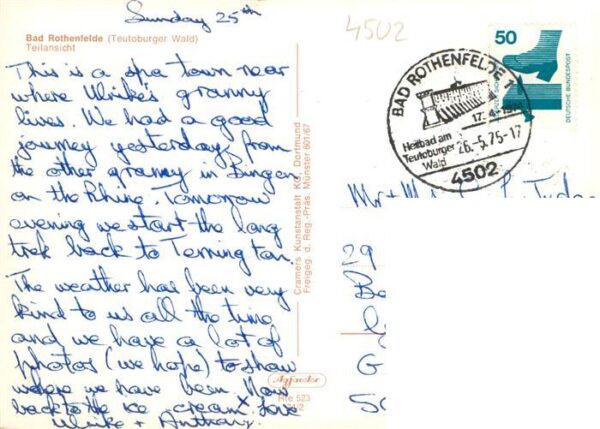 Sunday 25th
Bad Rothenfelde (Teutoburger Wald)
Teilansicht
This is a spa town near
where Ulrike's granny
lives. We had a good
journey yesterday from
the other granny in Bingen
on the Rhine. Tomorrow
evening we start the long
trek back to Ternington.
The weather has been very
kind to us all the time
and we have a lot of
photos (we hope) to show
where we have been. Now
back to the ice cream x Love
Ulrike + Anthony.
Cramers Kunstanstalt KG, Dortmund
Freigeg. d. Reg.-Präs. Münster 601/67
Agfacolor
Rte 523
4502
50
DEUTSCHE BUNDESPOST
BAD ROTHENFELDE 1
Heilbad am
Teutoburger
Wald
26.-5.75-17
4502
Mr + M
29
G